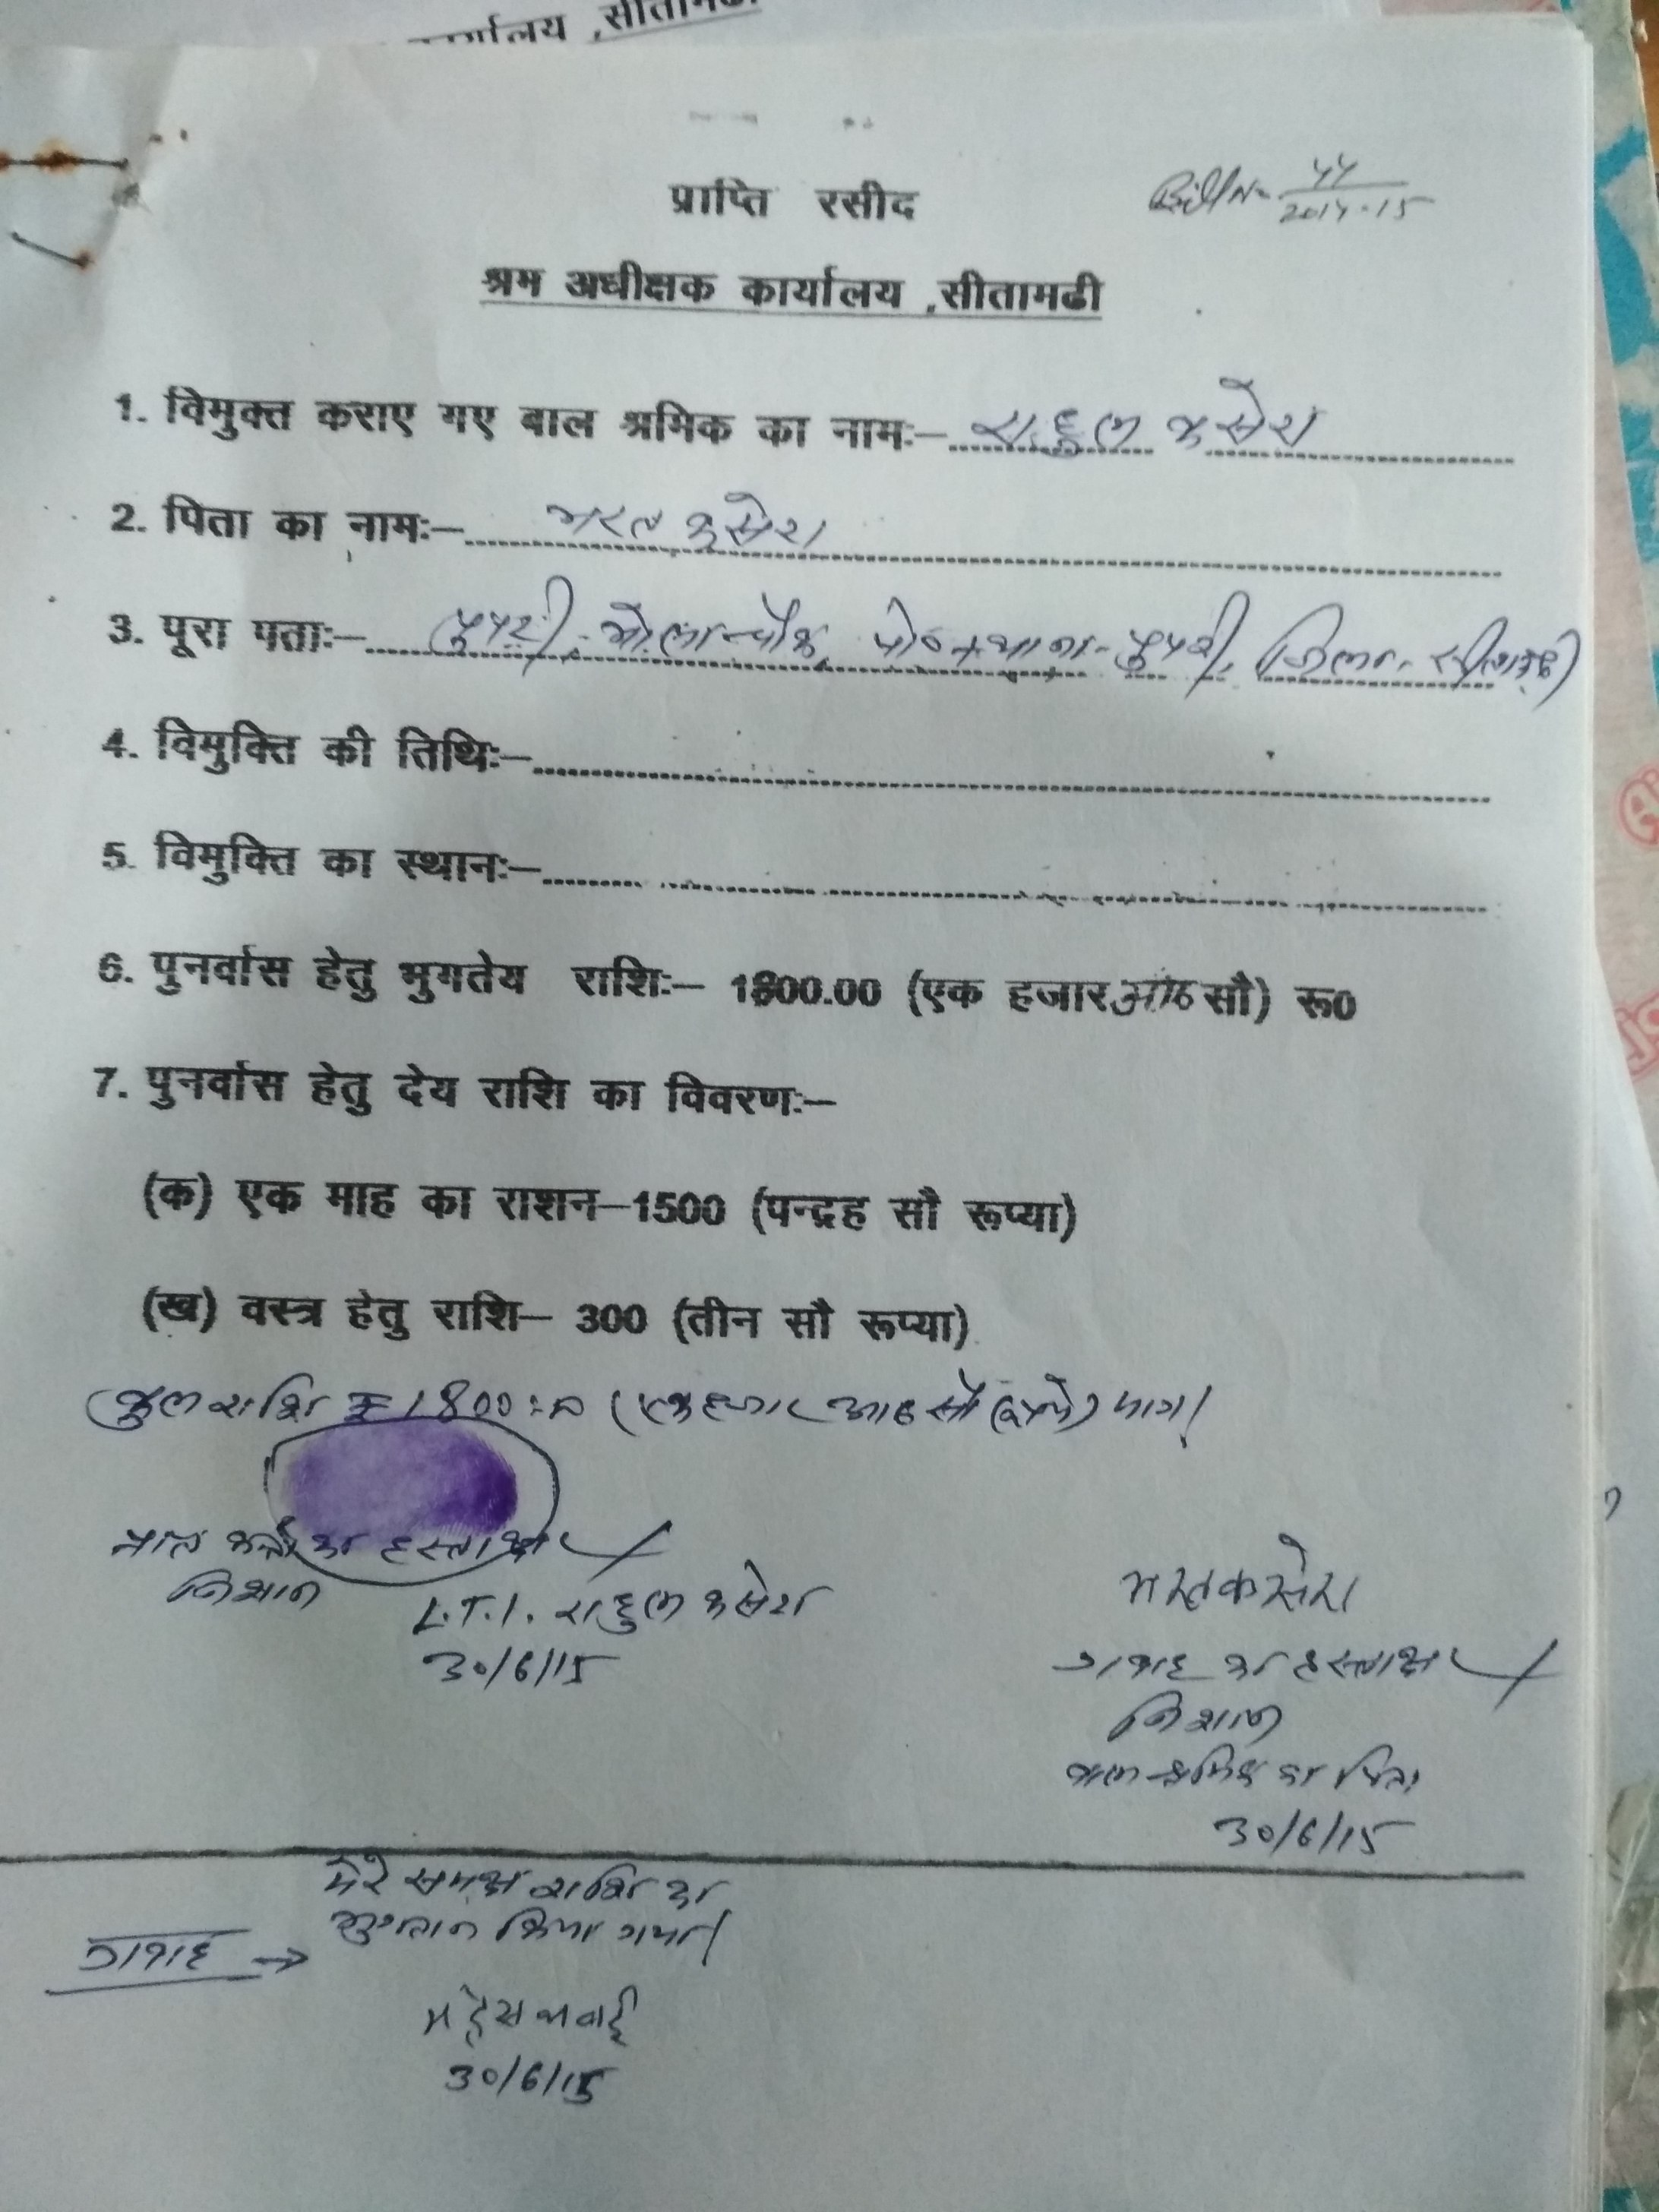 कार्यालय ,सीतामढी
प्राप्ति रसीद
Bill N- 44/2014-15
श्रम अधीक्षक कार्यालय ,सीतामढी
1. विमुक्त कराए गए बाल श्रमिक का नामः– राहुल कसेरा
2. पिता का नामः– भरत कसेरा
3. पूरा पताः– पुपरी, भोला चौक, पो०+थाना- पुपरी, जिला- सीतामढ़ी
4. विमुक्ति की तिथिः–
5. विमुक्ति का स्थानः–
6. पुनर्वास हेतु भुगतेय राशिः– 1800.00 (एक हजार आठ सौ) रू0
7. पुनर्वास हेतु देय राशि का विवरणः–
(क) एक माह का राशन–1500 (पन्द्रह सौ रूप्या)
(ख) वस्त्र हेतु राशि– 300 (तीन सौ रूप्या)
कुल राशि ₹ 1800=00 (एक हजार आठ सौ रूपये) मात्र।
प्राप्त कर्ता का हस्ताक्षर
निशान
L.T.I. राहुल कसेरा
30/6/15
भरत कसेरा
गवाह का हस्ताक्षर
निशान
बाल श्रमिक का पिता
30/6/15
मेरे समक्ष राशि का
भुगतान किया गया।
गवाह →
30/6/15